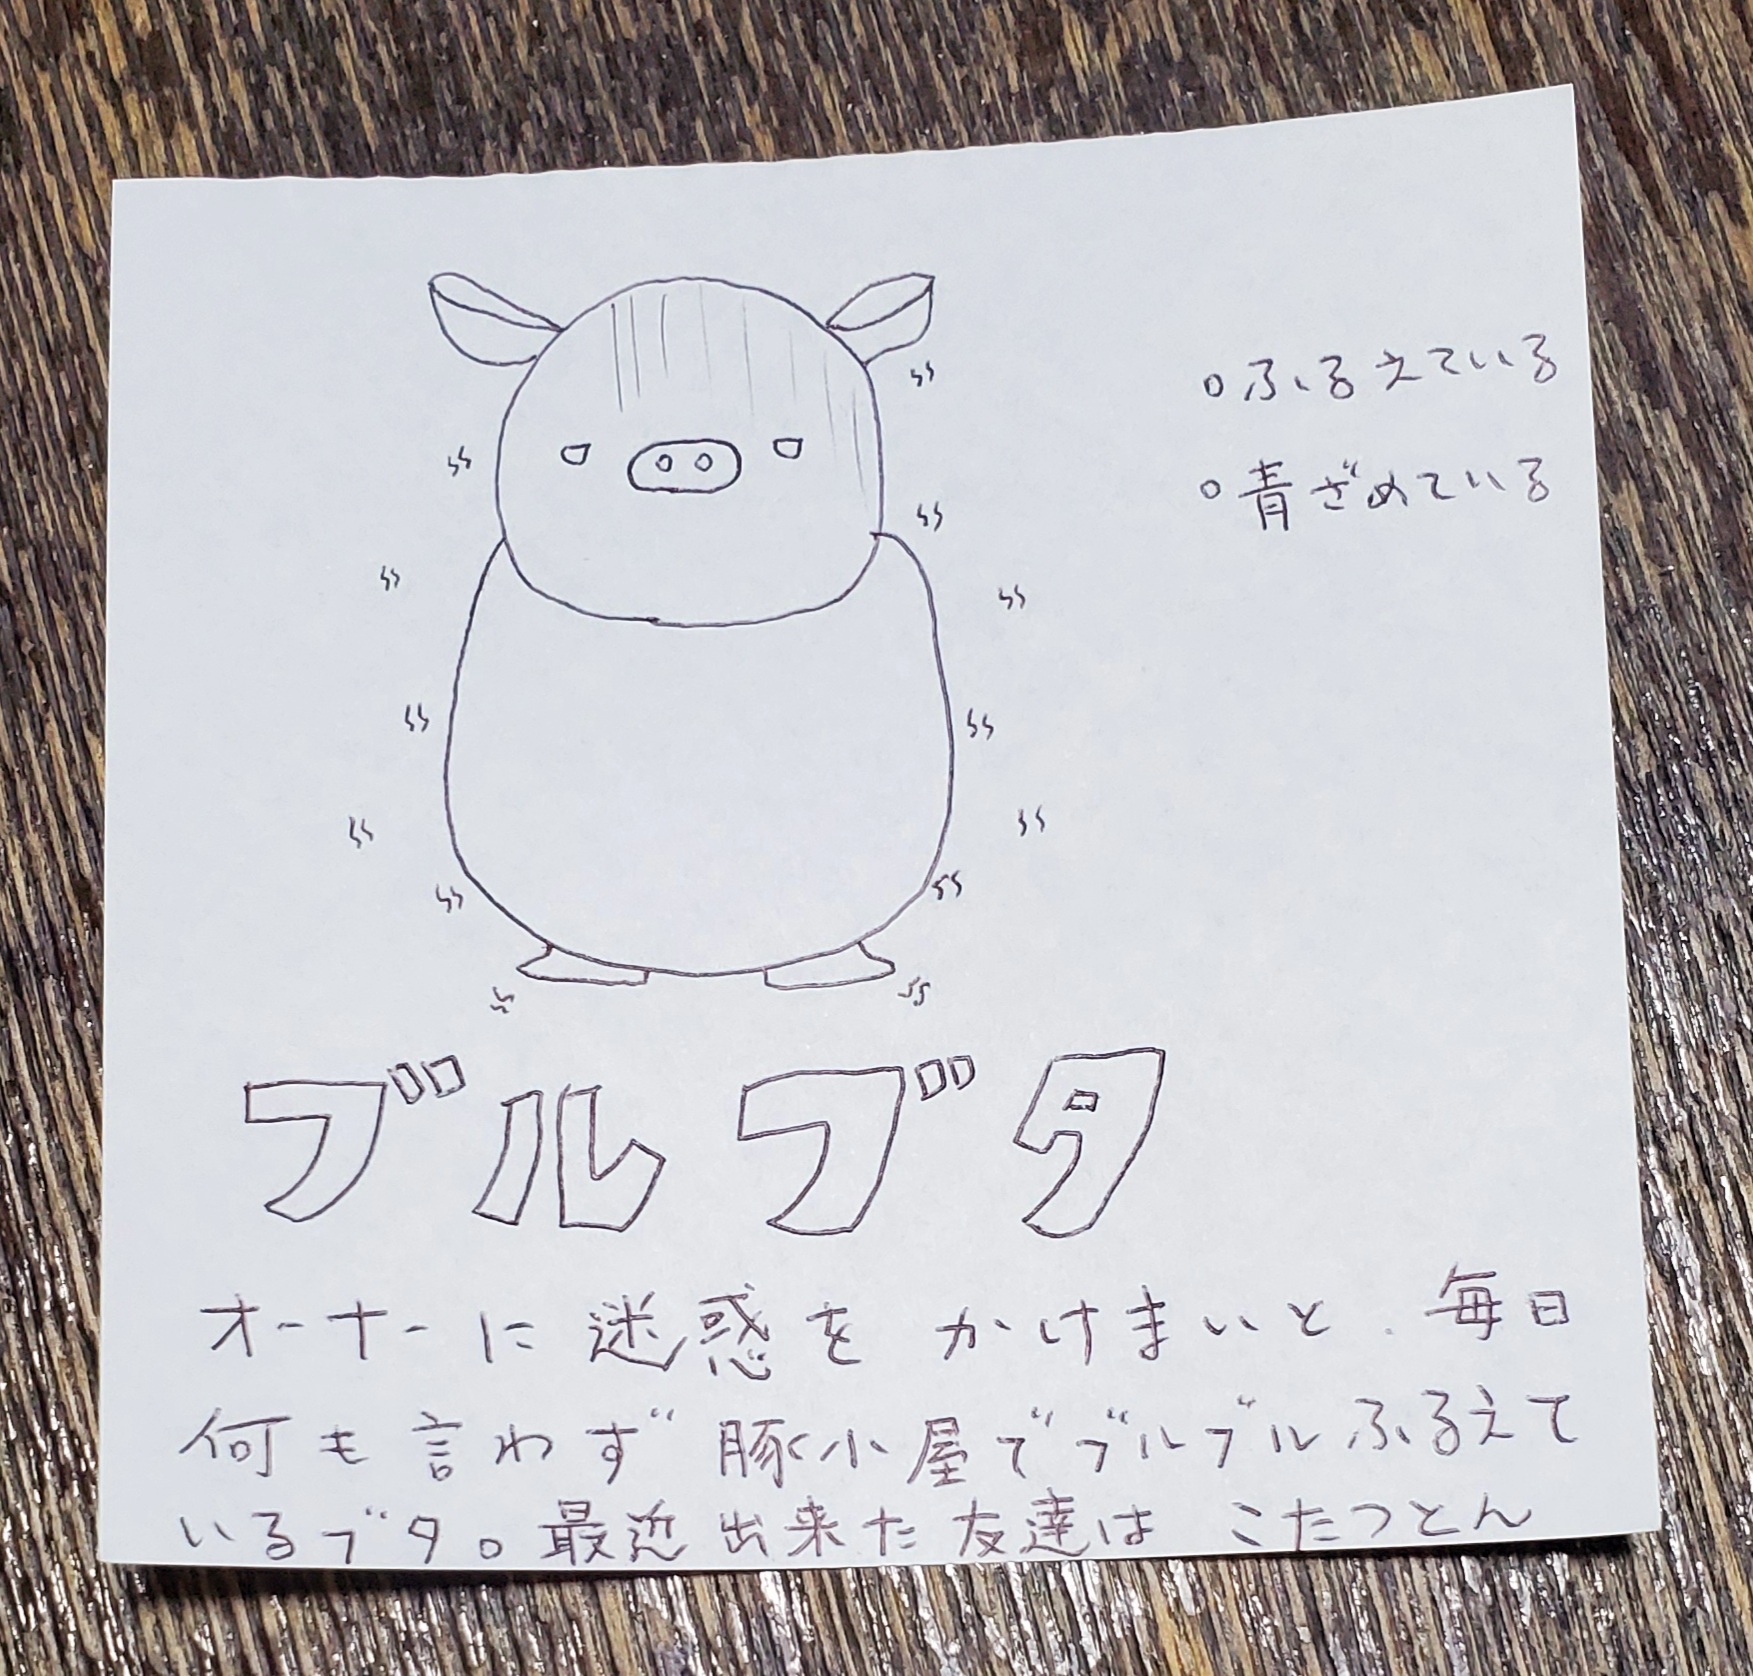 ○ふるえている
○青ざめている
ブルブタ
オーナーに迷惑をかけまいと、毎日
何も言わず豚小屋でブルブルふるえて
いるブタ。最近出来た友達はこたつとん